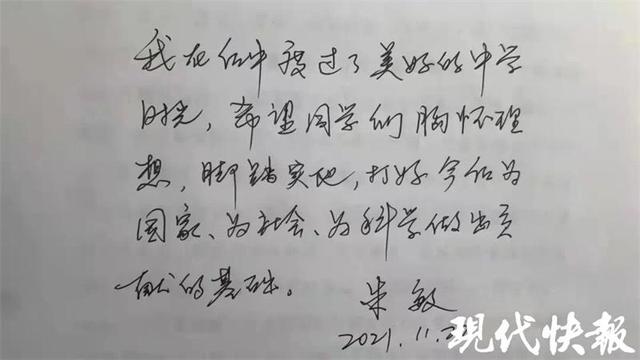 我在仪中度过了美好的中学
时光，希望同学们胸怀理
想，脚踏实地，打好今后为
国家、为社会、为科学做出贡
献的基础。
朱敏
2021.11.
現代快報